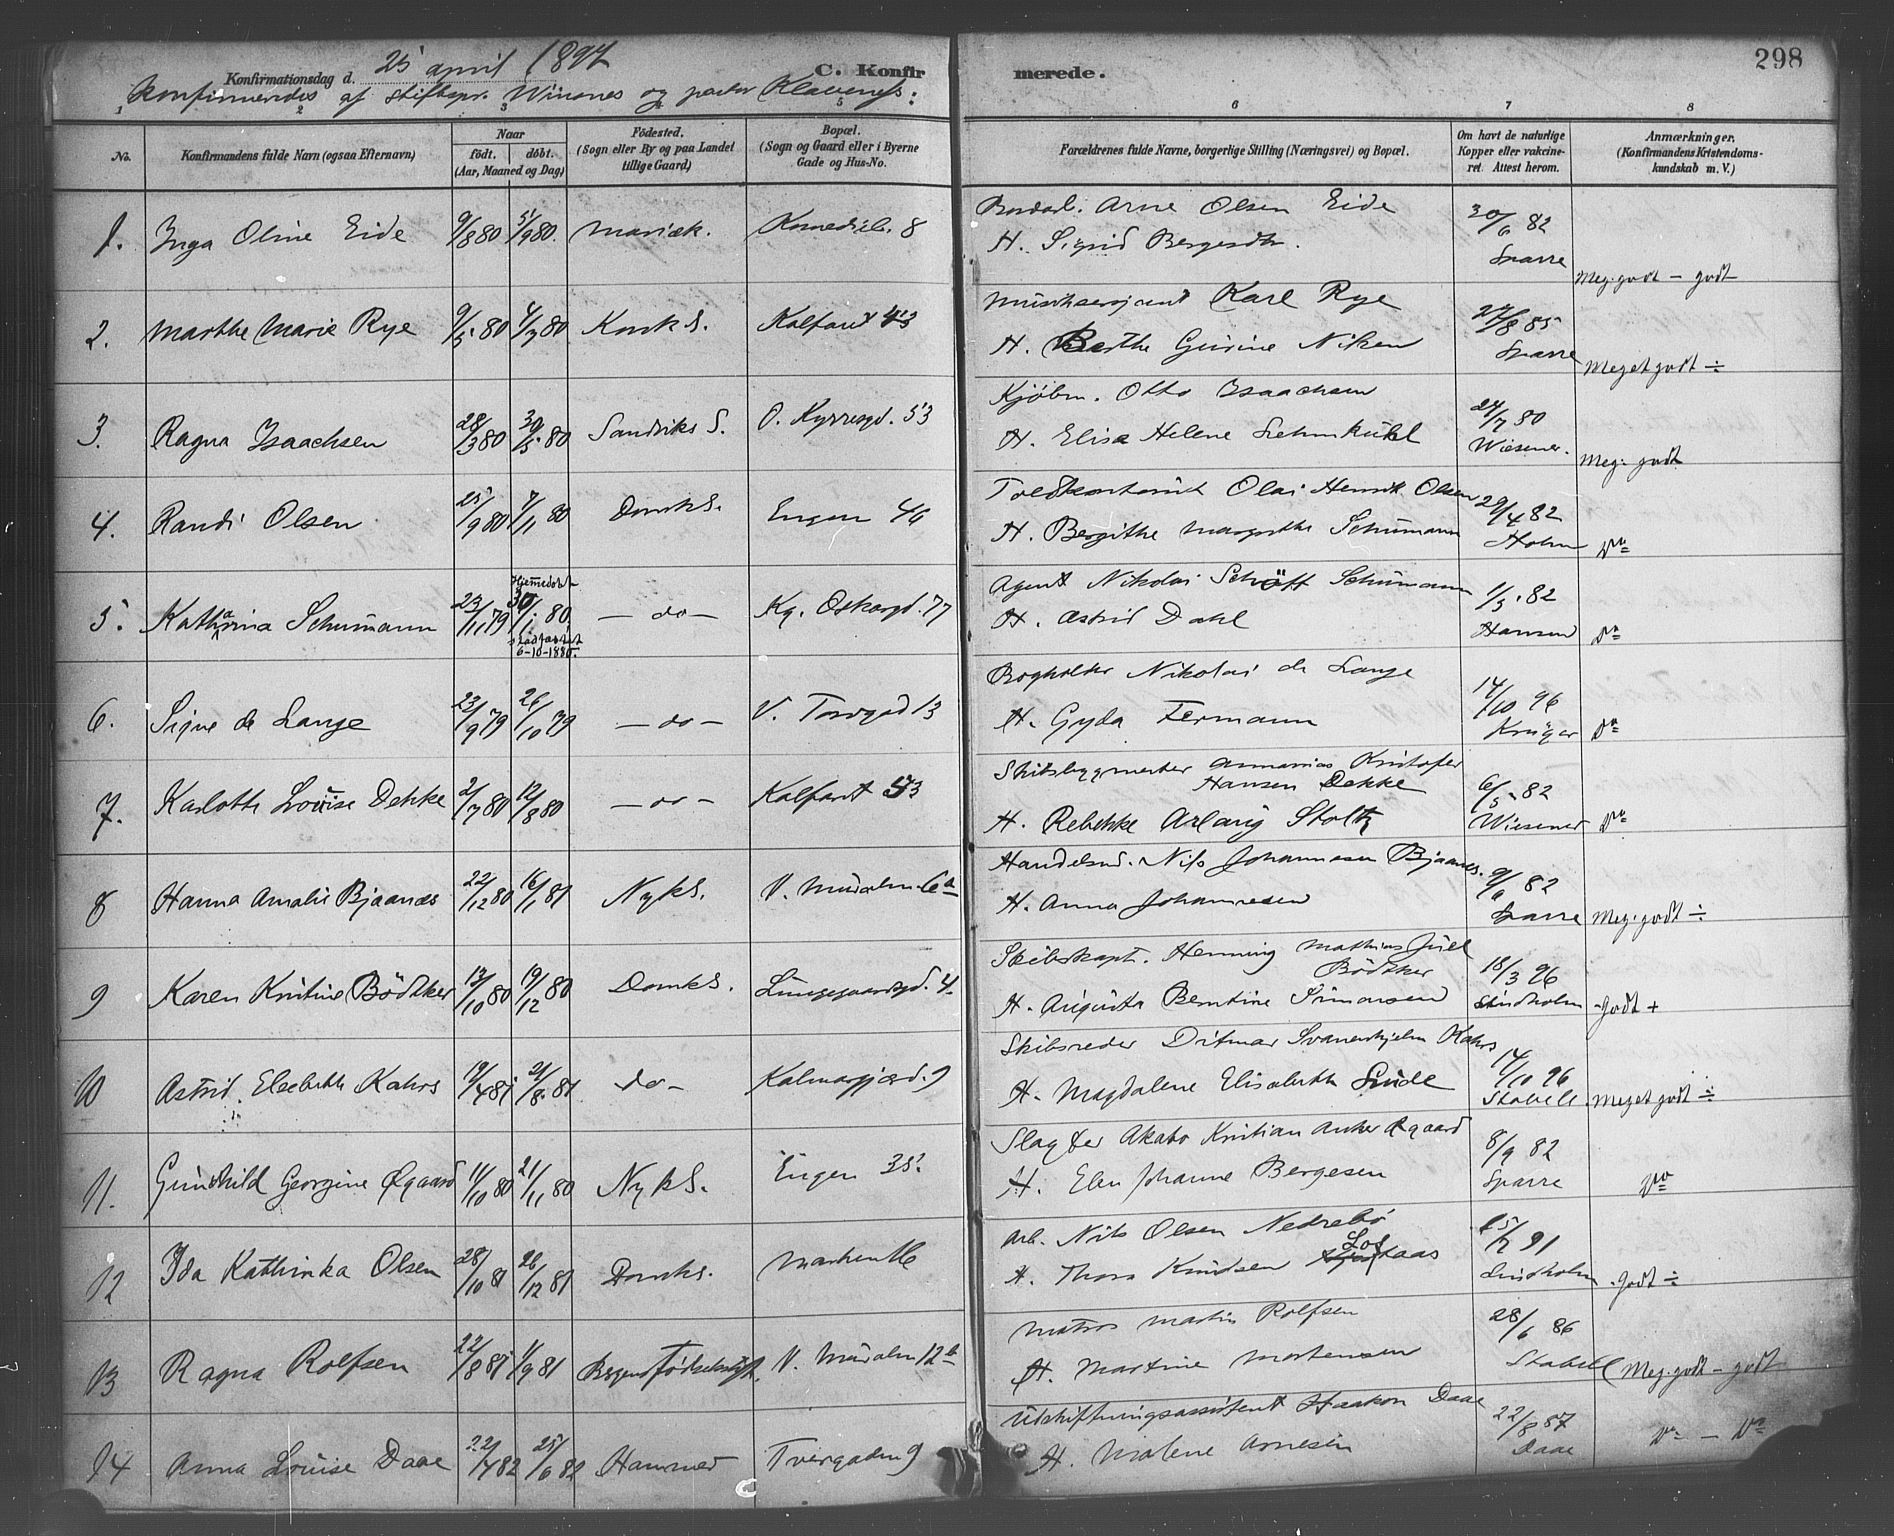 298
Konfirmationsdag d. 25 april 1897
C. Konfirmerede.
Konfirmeredes af stiftspr. Winsnes og pastor Klaveness:
1 2 3 4 5 6 7 8
No. Konfirmandens fulde Navn (ogsaa Efternavn) Naar født. døbt. (Aar, Maaned og Dag) Fødested. (Sogn eller By og paa Landet tillige Gaard) Bopæl. (Sogn og Gaard eller i Byerne Gade og Hus-No. Forældrenes fulde Navne, borgerlige Stilling (Næringsvei) og Bopæl. Om havt de naturlige Kopper eller vakcineret. Attest herom. Anmærkninger. (Konfirmandens Kristendomskundskab m. V.)
1. Inga Oline Eide 9/8 80 5/9 80. Mariæk. Komedieb. 8 Arne Olsen Eide 30/6 82
H. Sigrid Bergesdtr. Sparre Meg. godt - godt
2. Marthe Marie Rye 9/5 80 4/7 80 Korsk S. Kalfaret 43 Musiksersjant Karl Rye 27/8 85
H. Berthe Gurine Nilsen Sparre Meget godt ÷
3. Ragna Isaachsen 28/3 80 30/5 80 Sandviks S. O. Kyrresgd. 53 Kjøbm. Otto Isaachsen 24/7 80
H. Elise Helene Lehmkuhl Wiesener. Meg. godt
4. Randi Olsen 25/9 80 7/11 80 Domk S. Engen 46 Toldkontorist Olai Henrik Olsen 29/4 82
H. Bergithe Margrethe Schumann Holm Do
5. Katharina Schumann 23/11 79 Hjemmedøbt 30/1 80, stadfæstet 6-10-1880. - do - Kg. Oskarsgd. 77 Agent Nikolai Schumann 1/3 82
H. Astrid Dahl Hansen Do
6. Signe de Lange 23/9 79 26/10 79 - do - V. Torvgad 13 Bogholder Nikolai de Lange 14/10 96
H. Gyda Fermann Krüger Do
7. Karlotte Louise Dekke 2/7 80 12/8 80 - do - Kalfaret 53 Skibsbygmester Annanias Kristofer
Hansen Dekke 6/5 82
H. Rebekke Stoltz Wiesener Do
8 Hanna Amalie Bjaanæs 22/12 80 16/1 81 Nyk S. V. Muralm. 6a Handelsmd. Nils Johannesen Bjaanæs. 9/6 82
H. Anna Johannesen Sparre Meg. godt ÷
9 Karen Kristine Bödtker 13/10 80 19/12 80 Domk S. Lungegaardsgd. 4. Skibskapt. Henning Mathias Juel
Bödtker 18/3 96
H. Augusta Berntine Simonsen Lindholm Godt +
10 Astrid Elsebeth Kahrs 19/4 81 21/8 81 do - Kalmargjærd. 9 Skibsreder Ditmar Svanenhjelm Kahrs 14/10 96
H. Magdalene Elisabeth Stabell Meget godt ÷
11. Gunhild Georgine Øgaard 11/10 80 21/11 80 Nyk S. Engen 35. Slagter Akato Kristian Anker Øgaard 8/9 82
H. Elen Johanne Bergesen Sparre Do
12 Ida Kathinka Olsen 28/10 81 26/12 81 Domks. Marken Arb. Nils Olsen Nedrebö 91
H. Thora Knudsen Loftaas Lindholm godt ÷
13 Ragna Rolfsen 22/8 81 1/9 81 Bergens Fødselsstift. V. Muralm 12b Matros Martin Rolfsen 28/6 86
H. Martine Mortensen Stabell Meg. godt - godt
14 Anna Louise Daae 22/4 82 25/6 82 Hammer Tvergaden 9 Udskiftningsassistent Haakon Daae 22/8 87
H. Malene Arnesen Daae Do - Do